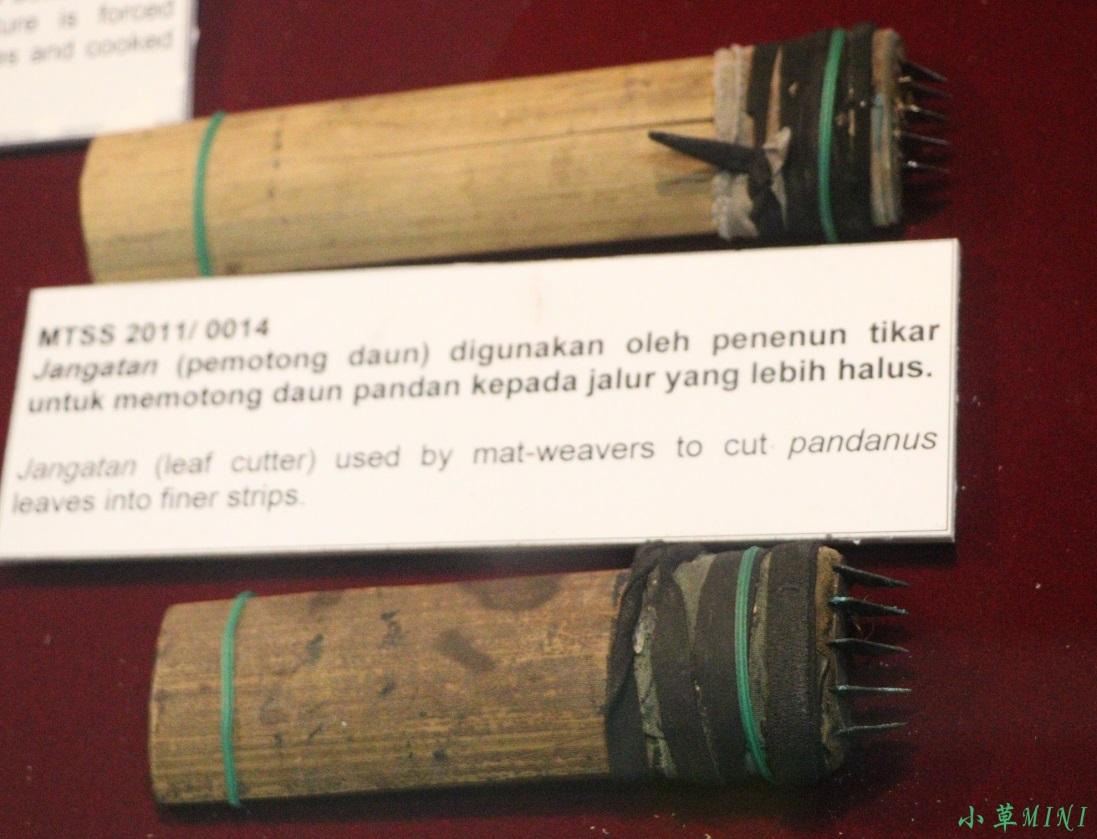 ture is forced
es and cooked
MTSS 2011/ 0014
Jangatan (pemotong daun) digunakan oleh penenun tikar
untuk memotong daun pandan kepada jalur yang lebih halus.
Jangatan (leaf cutter) used by mat-weavers to cut pandanus
leaves into finer strips.
小草MINI